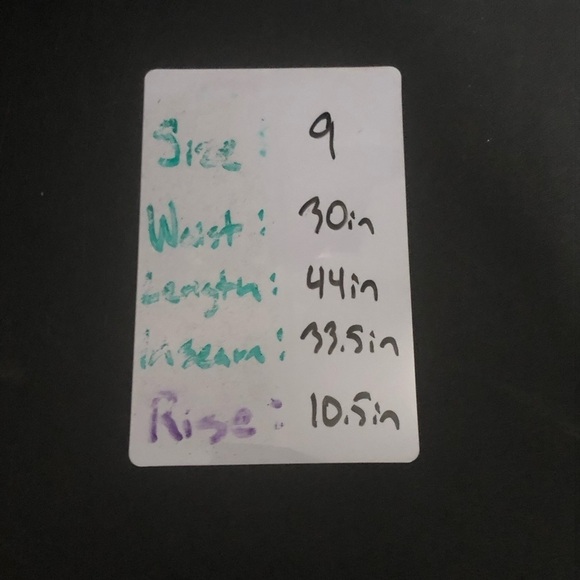 Size: 9
Waist: 30in
Length: 44in
Inseam: 33.5in
Rise: 10.5in